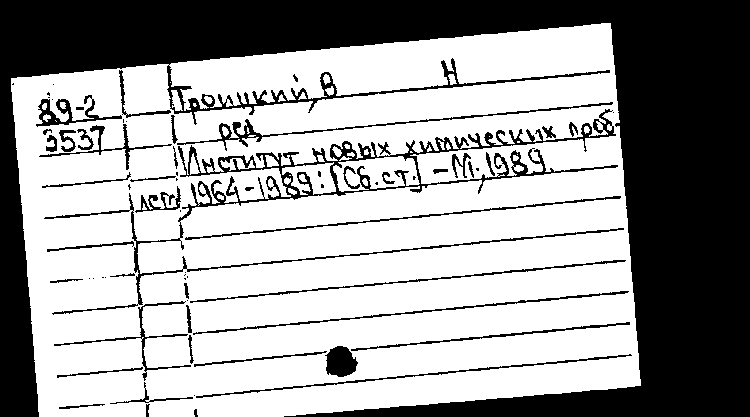 89-2 Троицкий, В Н
3537 ред.
Институт новых химических проб-
лем, 1964-1989: [Сб. ст.] - М., 1989.